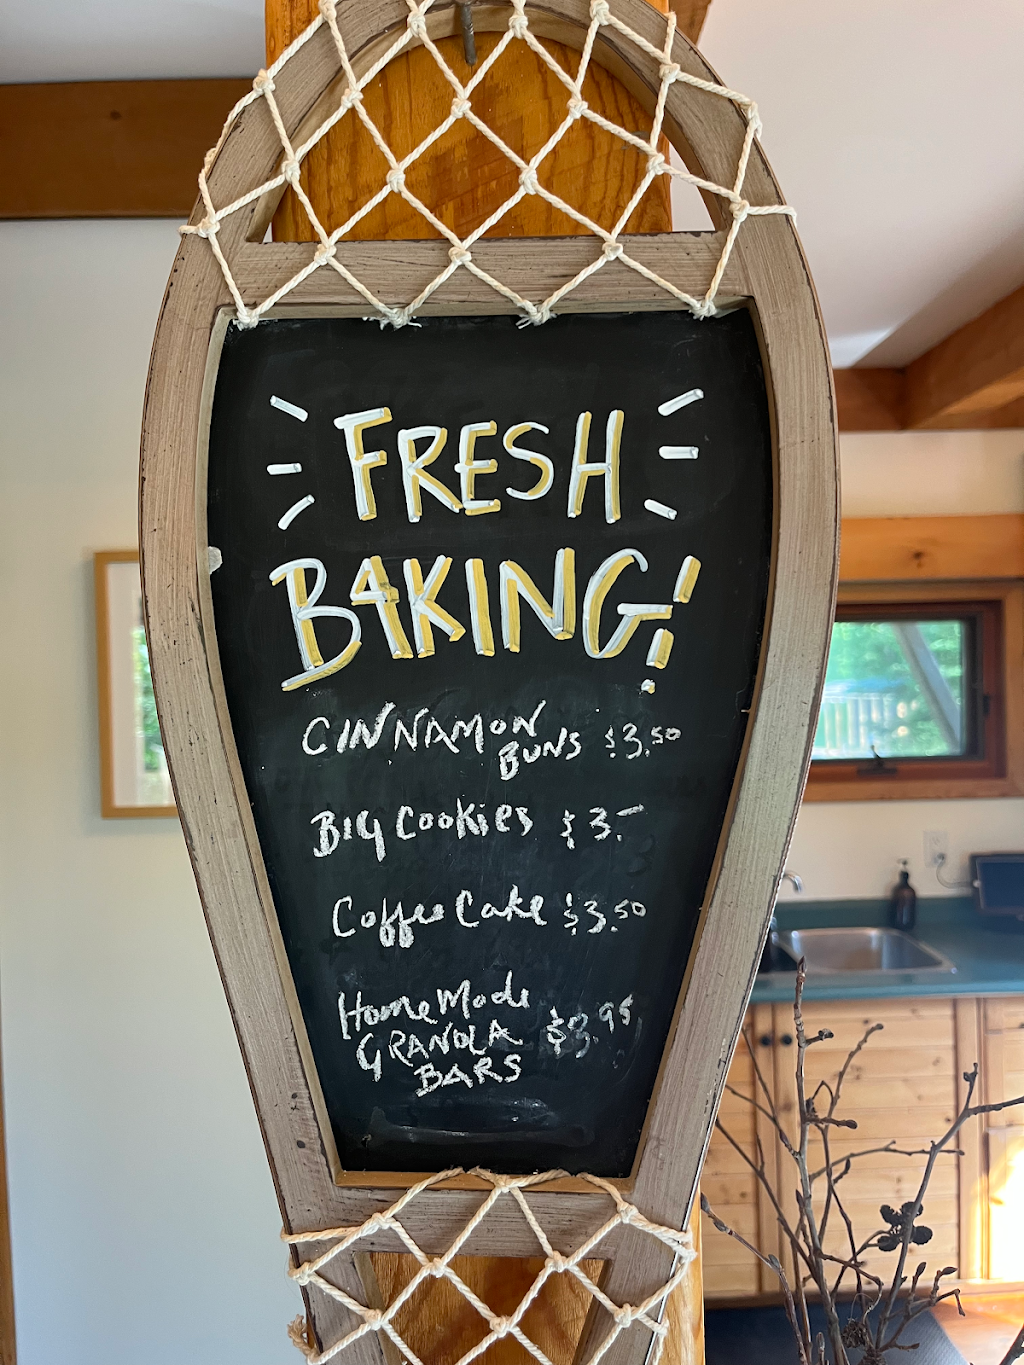 FRESH
BAKING!
CINNAMON
BUNS $3.50
BIG COOKIES $3.-
Coffee Cake $3.50
HomeMade
GRANOLA $3.95
BARS